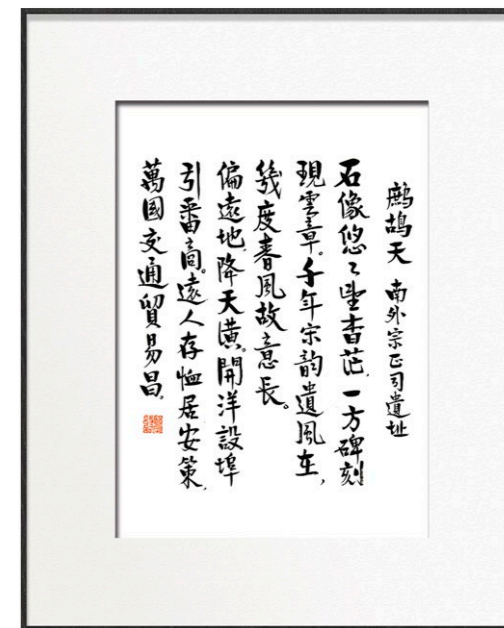 鷓鴣天 南外宗正司遺址
石像悠々望杳茫,一方碑刻
現雲章。千年宋韵遺風在,
幾度春風故意長。
偏遠地,降天潢。開洋設埠
引番商。遠人存恤居安策,
萬國交通貿易昌。